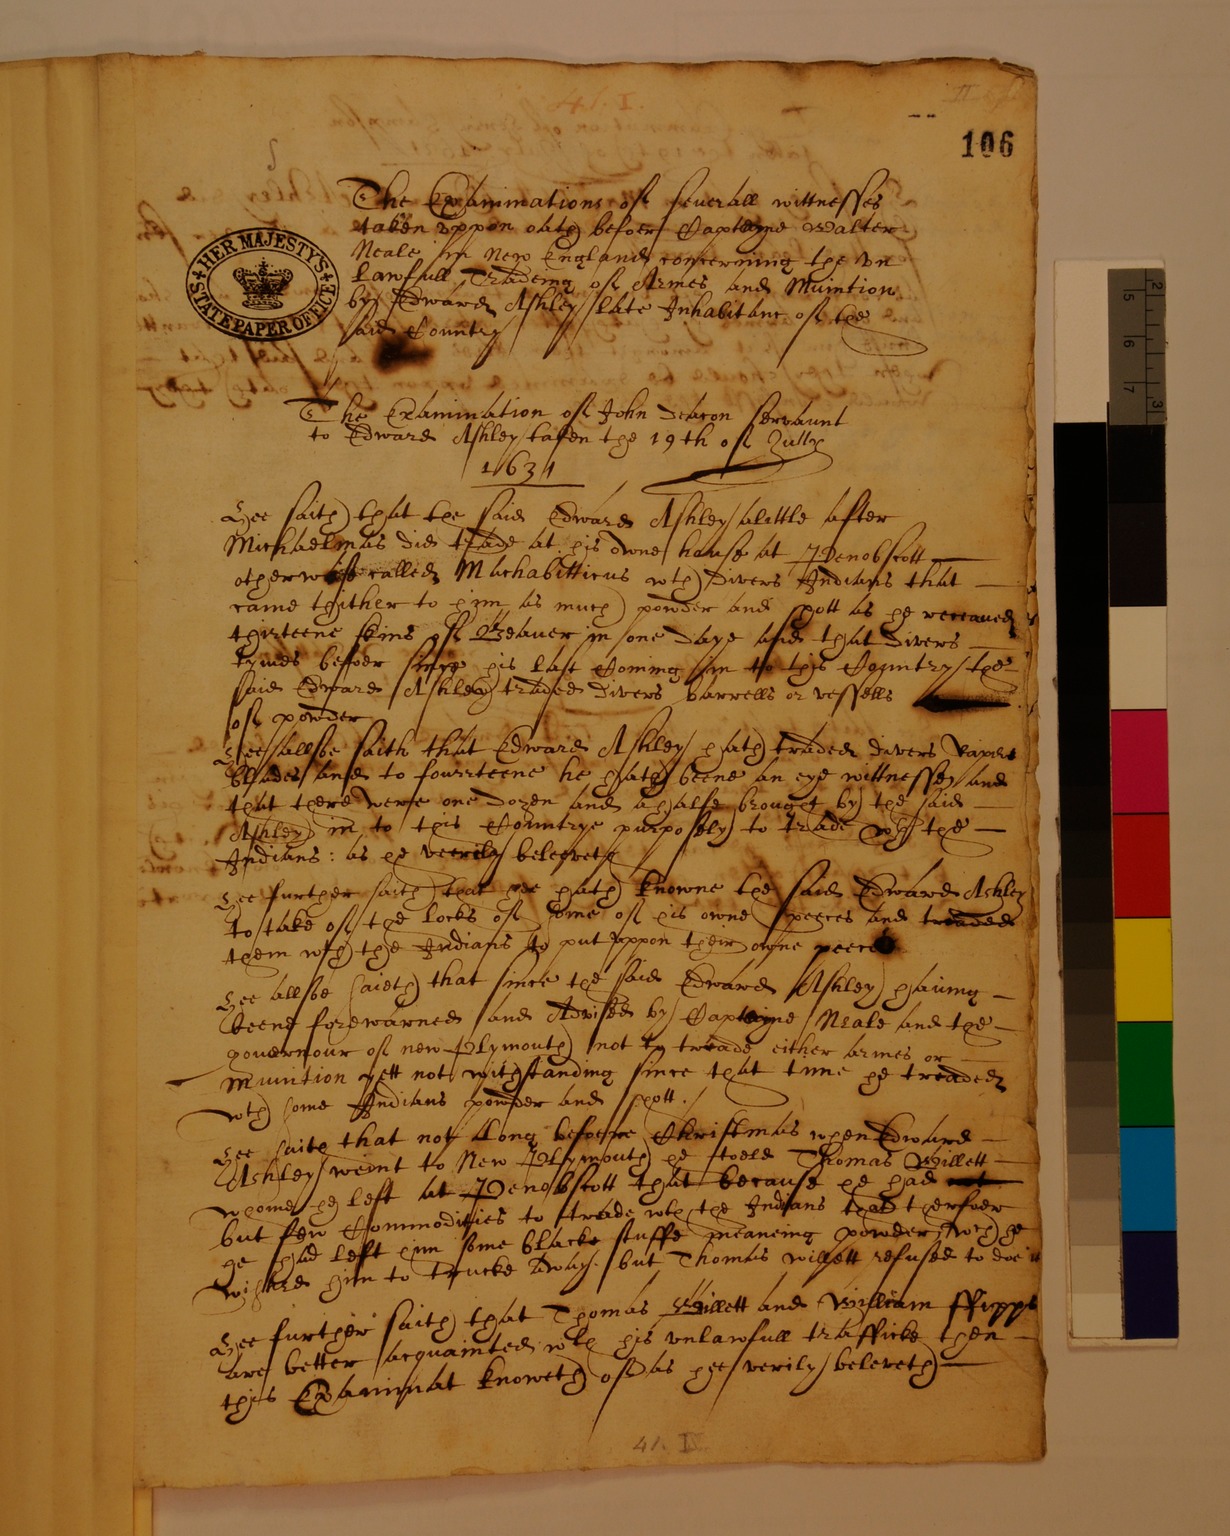 106
The Examinations of severall wittnesses
taken vppon oath before Captayne Walter
Neale in New England concerning the vn
lawfull Tradeing of Armes and Munition
by Edward Ashley late Inhabitant of the
said Country
HER MAJESTY'S STATE PAPER OFFICE
The Examination of John Deacon servaunt
to Edward Ashley taken the 19th of July
1631
Hee saith that the said Edward Ashley alittle after
Michaelmas did trade at his owne house at Penobscott
otherwise called Machabitticus wth divers Indians that
came thither to him as much powder and shott as he receaued
thirteene skins of Beauer in one daye and that divers
tymes befoer since his last Coming in to this Country the
said Edward Ashley traded divers barrells or vessells
of powder
Hee allsoe saith that Edward Ashley hath traded divers Rapier
blades and to fourteene he hath beene an eye wittnesse and
that there were one dozen and a halfe brought by the said
Ashley in to this Countrye purposely to trade wth the
Indians: as he veerily beleeveth
Hee further saith that hee hath knowne the said Edward Ashley
to take of the locks of some of his owne peeces and traded
them wth the Indians to put vppon their owne peeces
Hee allsoe saieth that since the said Edward Ashley hauing
beene forewarned and Advised by Captayne Neale and the
gouernour of new Plymouth not to treade either armes or
Munition yett not withstanding since that time he treaded
wth some Indians powder and shott.
Hee saith that not Long befoere Christmas when Edward
Ashley weint to New Plymouth he toeld Thomas Willett
whome he left at Penobscott that because he had
but few Commodities to trade wth the Indians that therfoer
he had left him some blacke stuffe meaneing powder, wch he
wished him to trucke away. but Thomas Willett refused to doe it
Hee further saith that Thomas Willett and William ffipps
are better acquainted wth his vnlawfull trafficke then
this Examinat knoweth of as hee verily beleveth
41. IV